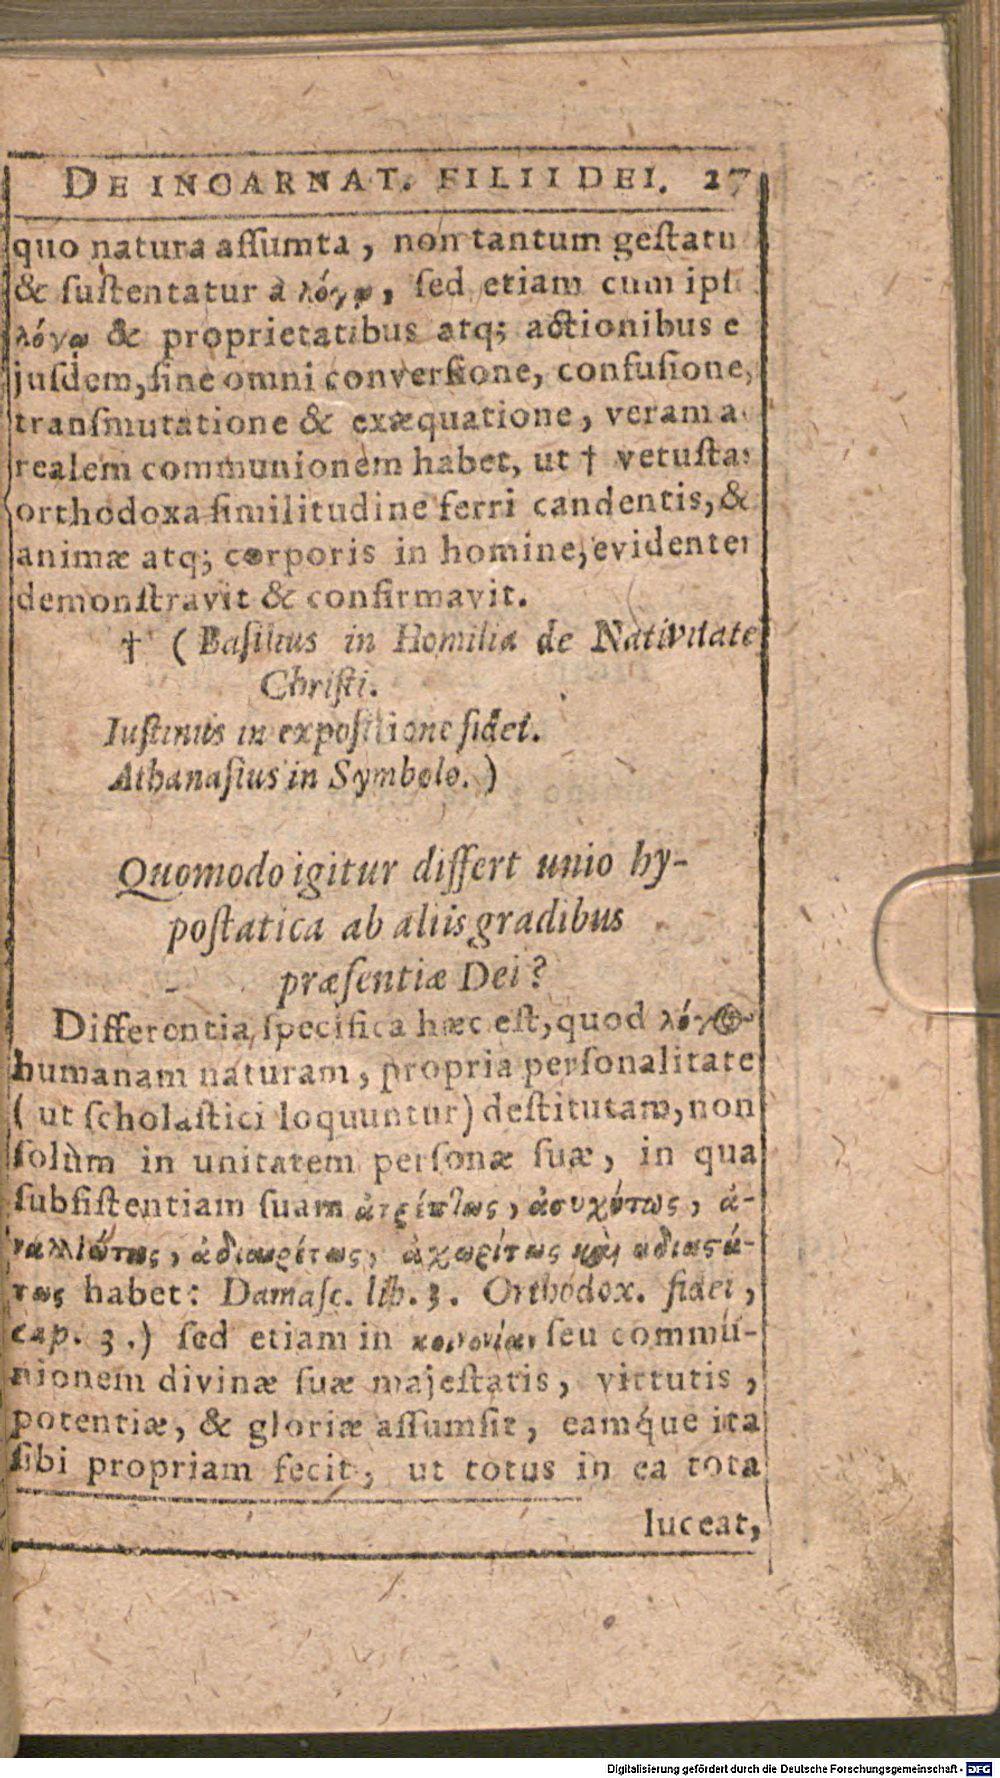 DE INCARNAT. FILII DEI. 27
quo natura aſſumta, non tantum geſtatu
& ſuſtentatur à λόγῳ, ſed etiam cum ipſ
λόγῳ & proprietatibus atq; actionibus e
juſdem, ſine omni converſione, confuſione,
tranſmutatione & exæquatione, veram a
realem communionem habet, ut † vetuſtas
orthodoxa ſimilitudine ferri candentis, &
animæ atq; corporis in homine, evidenter
demonſtravit & confirmavit.
† (Baſilius in Homilia de Nativitate
Chriſti.
Iuſtinus in expoſitione fidei.
Athanaſius in Symbolo.)
Quomodo igitur differt unio hy-
poſtatica ab aliis gradibus
præſentiæ Dei?
Differentia ſpecifica hæc eſt, quod λόγος
humanam naturam, propria perſonalitate
(ut ſcholaſtici loquuntur) deſtitutam, non
ſolùm in unitatem perſonæ ſuæ, in qua
ſubſiſtentiam ſuam ἀτρέπτως, ἀσυχύτως, ἀ-
ναλλιώτως, ἀδιαιρέτως, ἀχωρίτως καὶ ἀδιαστά-
τως habet: Damaſc. lib. 3. Orthodox. fidei,
cap. 3.) ſed etiam in κοινονίαν ſeu commu-
nionem divinæ ſuæ majeſtatis, virtutis,
potentiæ, & gloriæ aſſumſit, eamq́ue ita
ſibi propriam fecit, ut totus in ea tota
luceat,
Digitalisierung gefördert durch die Deutsche Forschungsgemeinschaft - DFG